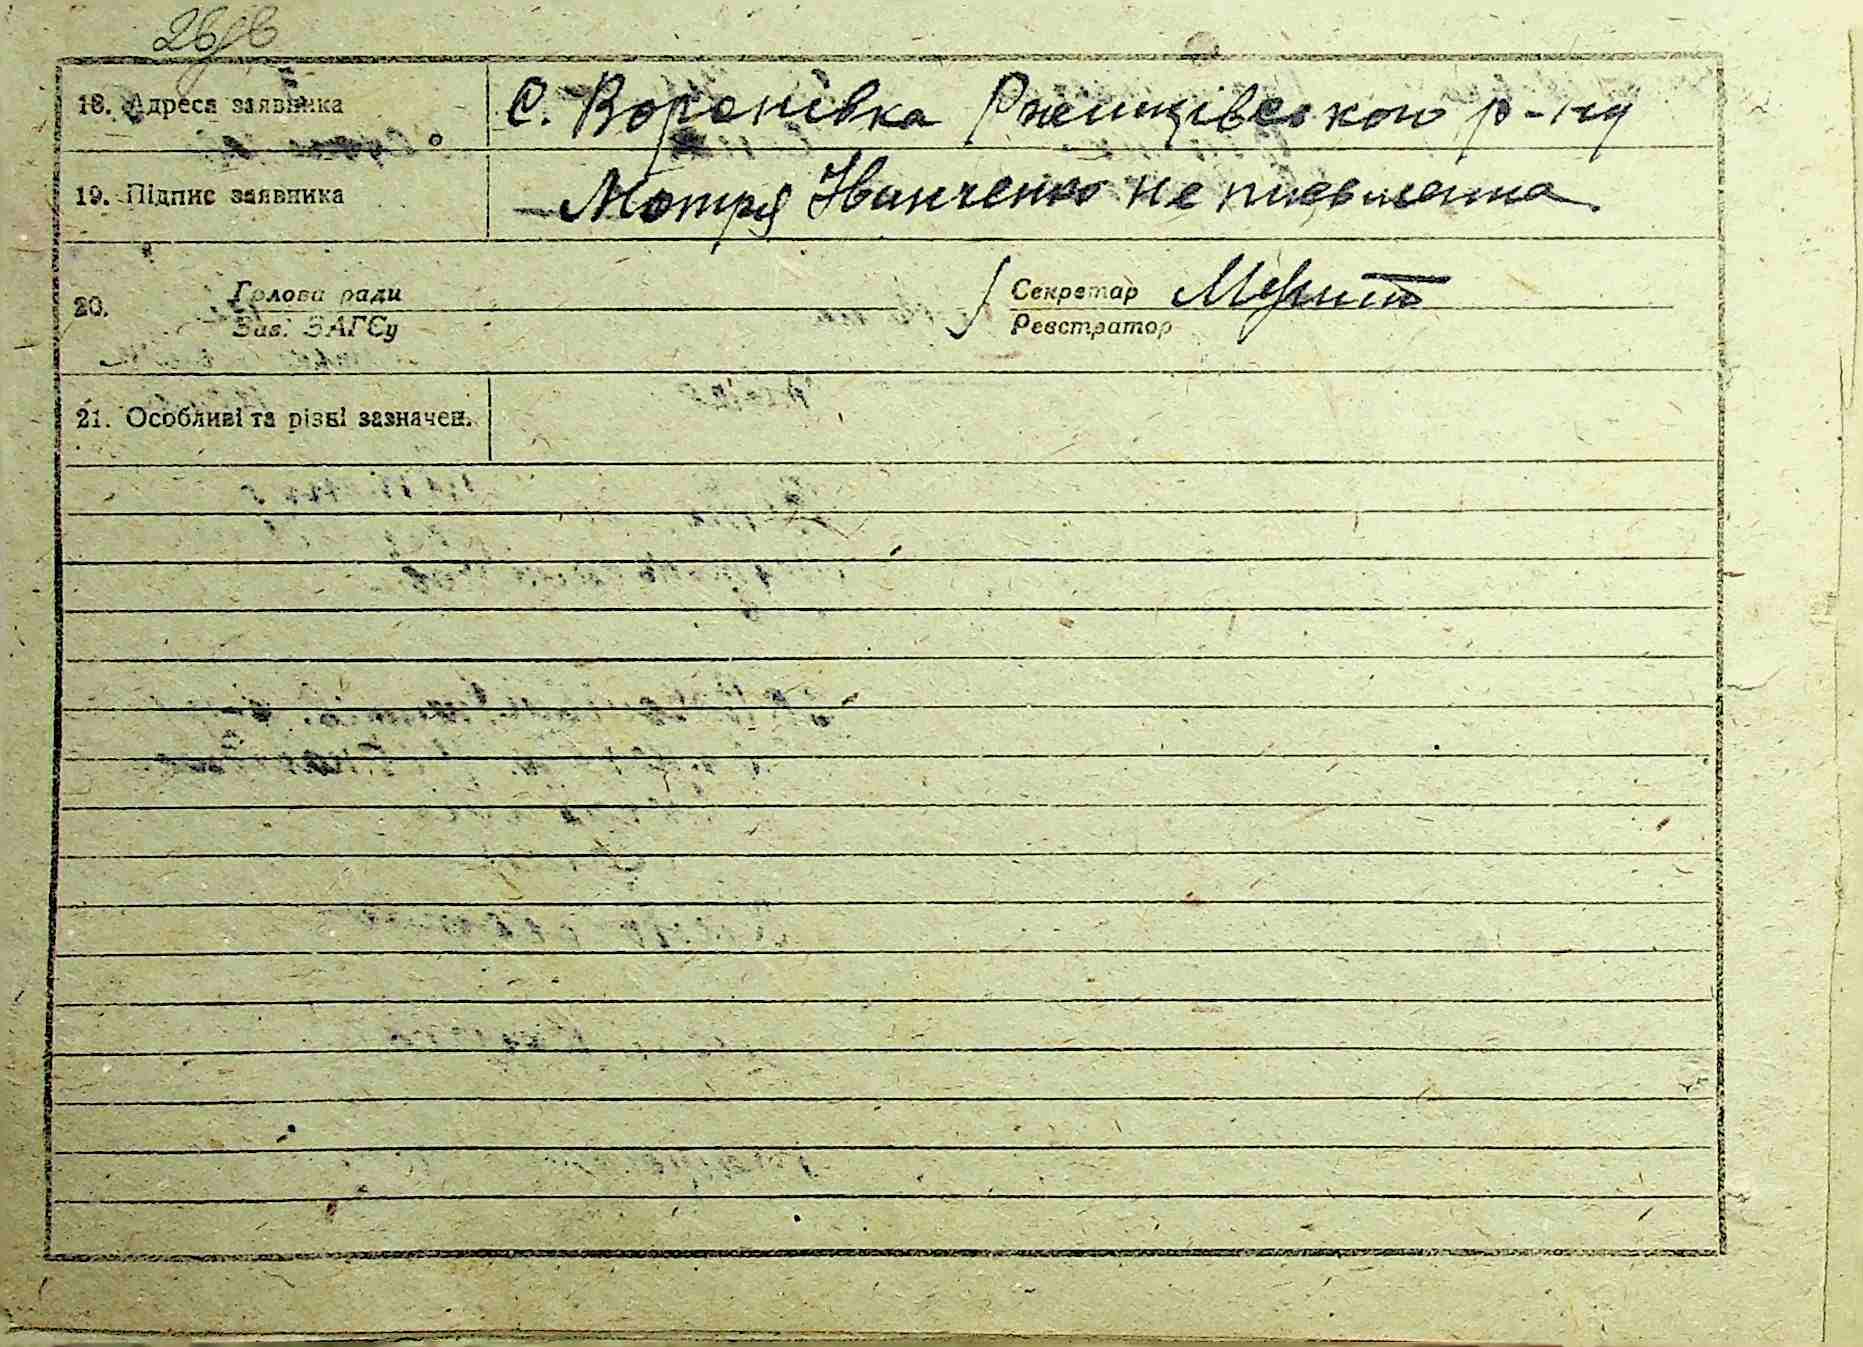 18. Адреса заявника с. Воронівка Ржищівського р-ну
19. Підпис заявника Мотря Іванченко не письменна.
20. Голова ради Секретар
Зав. ЗАГСу Реєстратор
21. Особливі та різні зазначен.